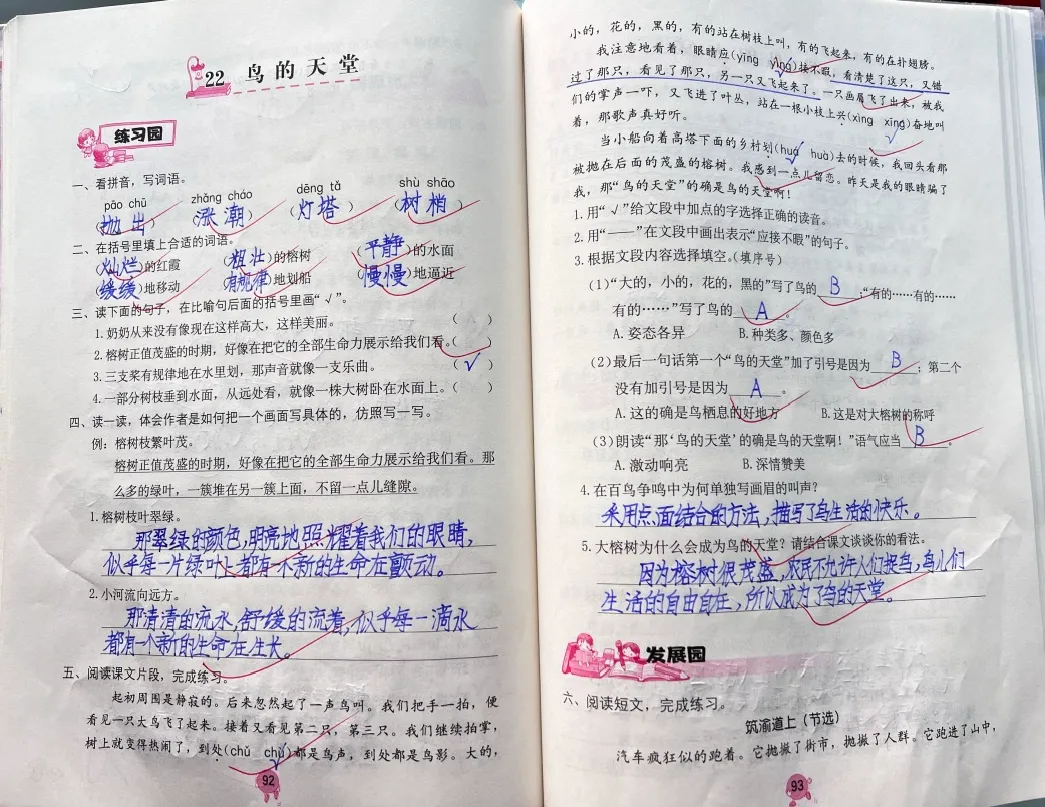 22 鸟的天堂
练习园
一、看拼音，写词语。
pāo chū zhǎng cháo dēng tǎ shù shāo
(抛出) (涨潮) (灯塔) (树梢)
二、在括号里填上合适的词语。
(灿烂)的红霞 (粗壮)的榕树 (平静)的水面
(缓缓)地移动 (有规律)地划船 (慢慢)地逼近
三、读下面的句子，在比喻句后面的括号里画“√”。
1.奶奶从来没有像现在这样高大，这样美丽。 ( )
2.榕树正值茂盛的时期，好像在把它的全部生命力展示给我们看。( )
3.三支桨有规律地在水里划，那声音就像一支乐曲。 (√)
4.一部分树枝垂到水面，从远处看，就像一株大树卧在水面上。( )
四、读一读，体会作者是如何把一个画面写具体的，仿照写一写。
例：榕树枝繁叶茂。
榕树正值茂盛的时期，好像在把它的全部生命力展示给我们看。那
么多的绿叶，一簇堆在另一簇上面，不留一点儿缝隙。
1.榕树枝叶翠绿。
那翠绿的颜色，明亮地照耀着我们的眼睛，
似乎每一片绿叶上都有一个新的生命在颤动。
2.小河流向远方。
那清清的流水，舒缓的流着，似乎每一滴水
都有一个新的生命在生长。
五、阅读课文片段，完成练习。
起初周围是静寂的。后来忽然起了一声鸟叫。我们把手一拍，便
看见一只大鸟飞了起来。接着又看见第二只，第三只。我们继续拍掌，
树上就变得热闹了，到处(chǔ chù√)都是鸟声，到处都是鸟影。大的，
92
小的，花的，黑的，有的站在树枝上叫，有的飞起来，有的在扑翅膀。
我注意地看着，眼睛应(yīng yìng√)接不暇，看清楚了这只，又错
过了那只，看见了那只，另一只又飞起来了。一只画眉飞了出来，被我
们的掌声一吓，又飞进了叶丛，站在一根小枝上兴(xìng xīng√)奋地叫
着，那歌声真好听。
当小船向着高塔下面的乡村划(huá√ huà)去的时候，我回头看那
被抛在后面的茂盛的榕树。我感到一点儿留恋。昨天是我的眼睛骗了
我，那“鸟的天堂”的确是鸟的天堂啊！
1.用“√”给文段中加点的字选择正确的读音。
2.用“——”在文段中画出表示“应接不暇”的句子。
3.根据文段内容选择填空。(填序号)
(1)“大的，小的，花的，黑的”写了鸟的 B ；“有的……有的……
有的……”写了鸟的 A 。
A.姿态各异 B.种类多、颜色多
(2)最后一句话第一个“鸟的天堂”加了引号是因为 B ；第二个
没有加引号是因为 A 。
A.这的确是鸟栖息的好地方 B.这是对大榕树的称呼
(3)朗读“那‘鸟的天堂’的确是鸟的天堂啊！”语气应当 B 。
A.激动响亮 B.深情赞美
4.在百鸟争鸣中为何单独写画眉的叫声？
采用点面结合的方法，描写了鸟生活的快乐。
5.大榕树为什么会成为鸟的天堂？请结合课文谈谈你的看法。
因为榕树很茂盛，农民不允许人们捉鸟，鸟儿们
生活的自由自在，所以成为了鸟的天堂。
发展园
六、阅读短文，完成练习。
筑渝道上(节选)
汽车疯狂似的跑着。它抛撇了街市，抛撇了人群。它跑进了山中，
93